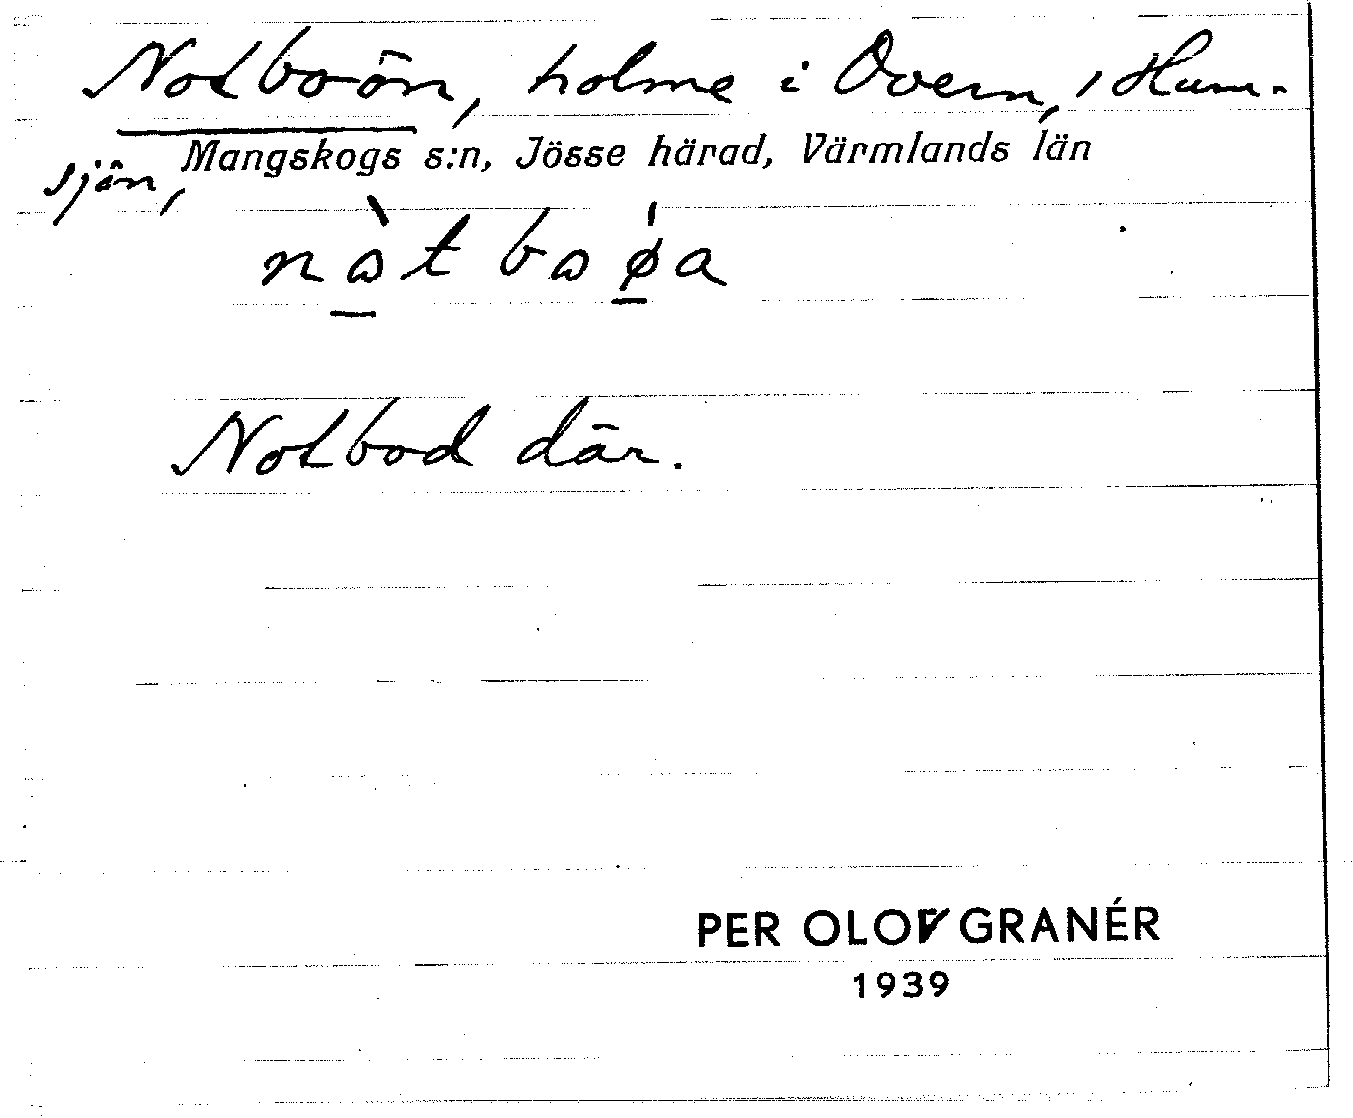 Notboön, holme i Overn, i Hum-
sjön, Mangskogs s:n, Jösse härad, Värmlands län
Notbod där.
PER OLOV GRANÉR
1939